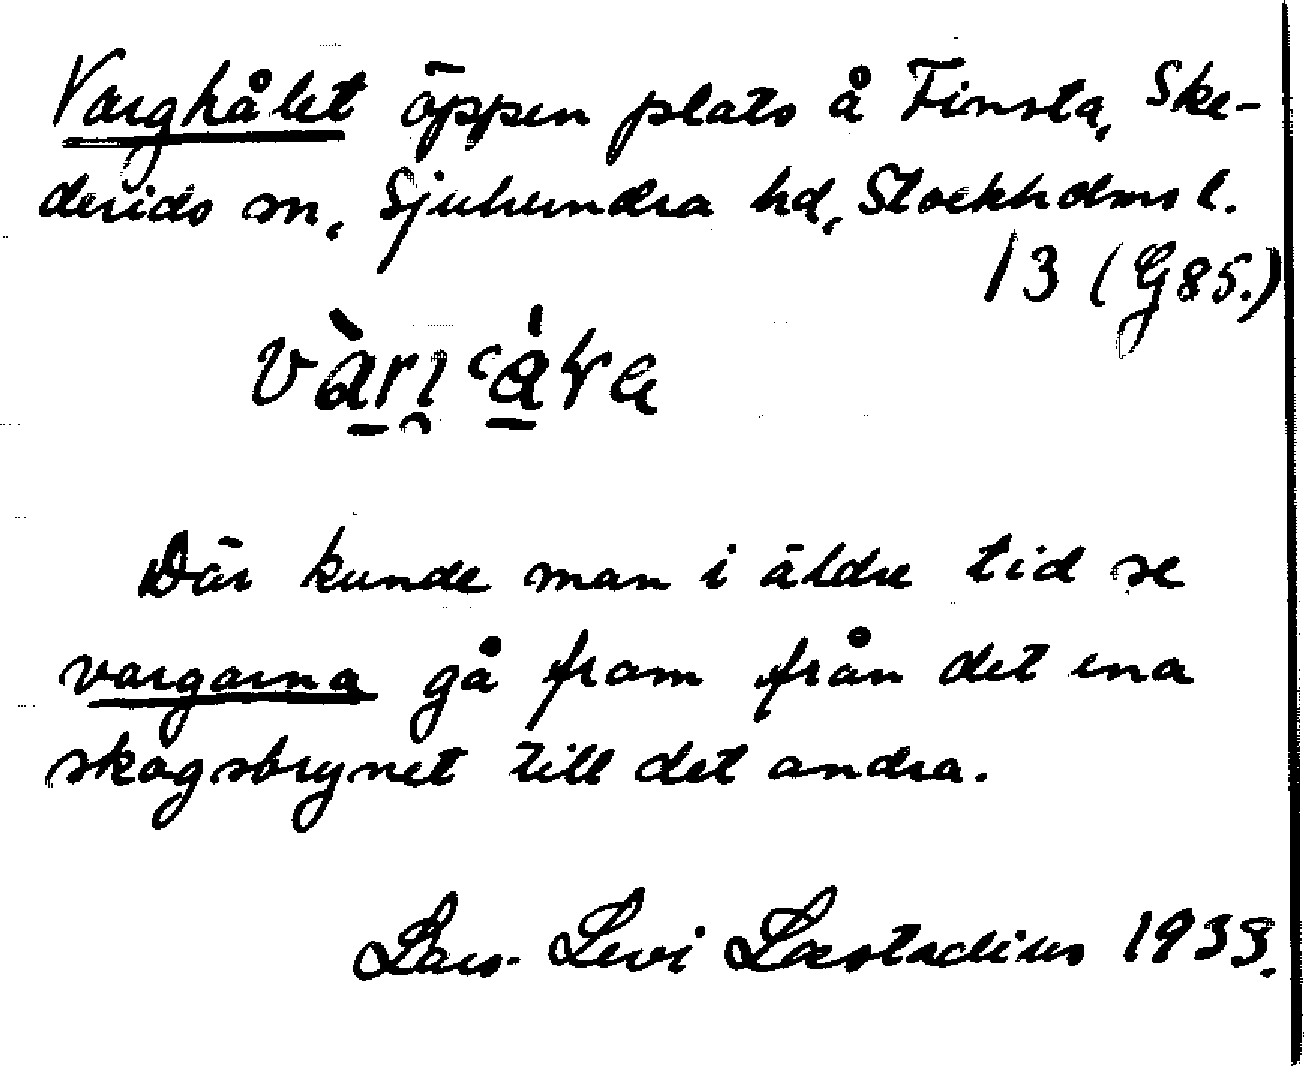 Varghålet öppen plats å Finsta, Ske-
derids sn, Sjuhundra hd, Stockholms l.
13 (G85.)
Där kunde man i äldre tid se
vargarna gå fram från det ena
skogsbrynet till det andra.
Lars-Levi Læstadius 1933.